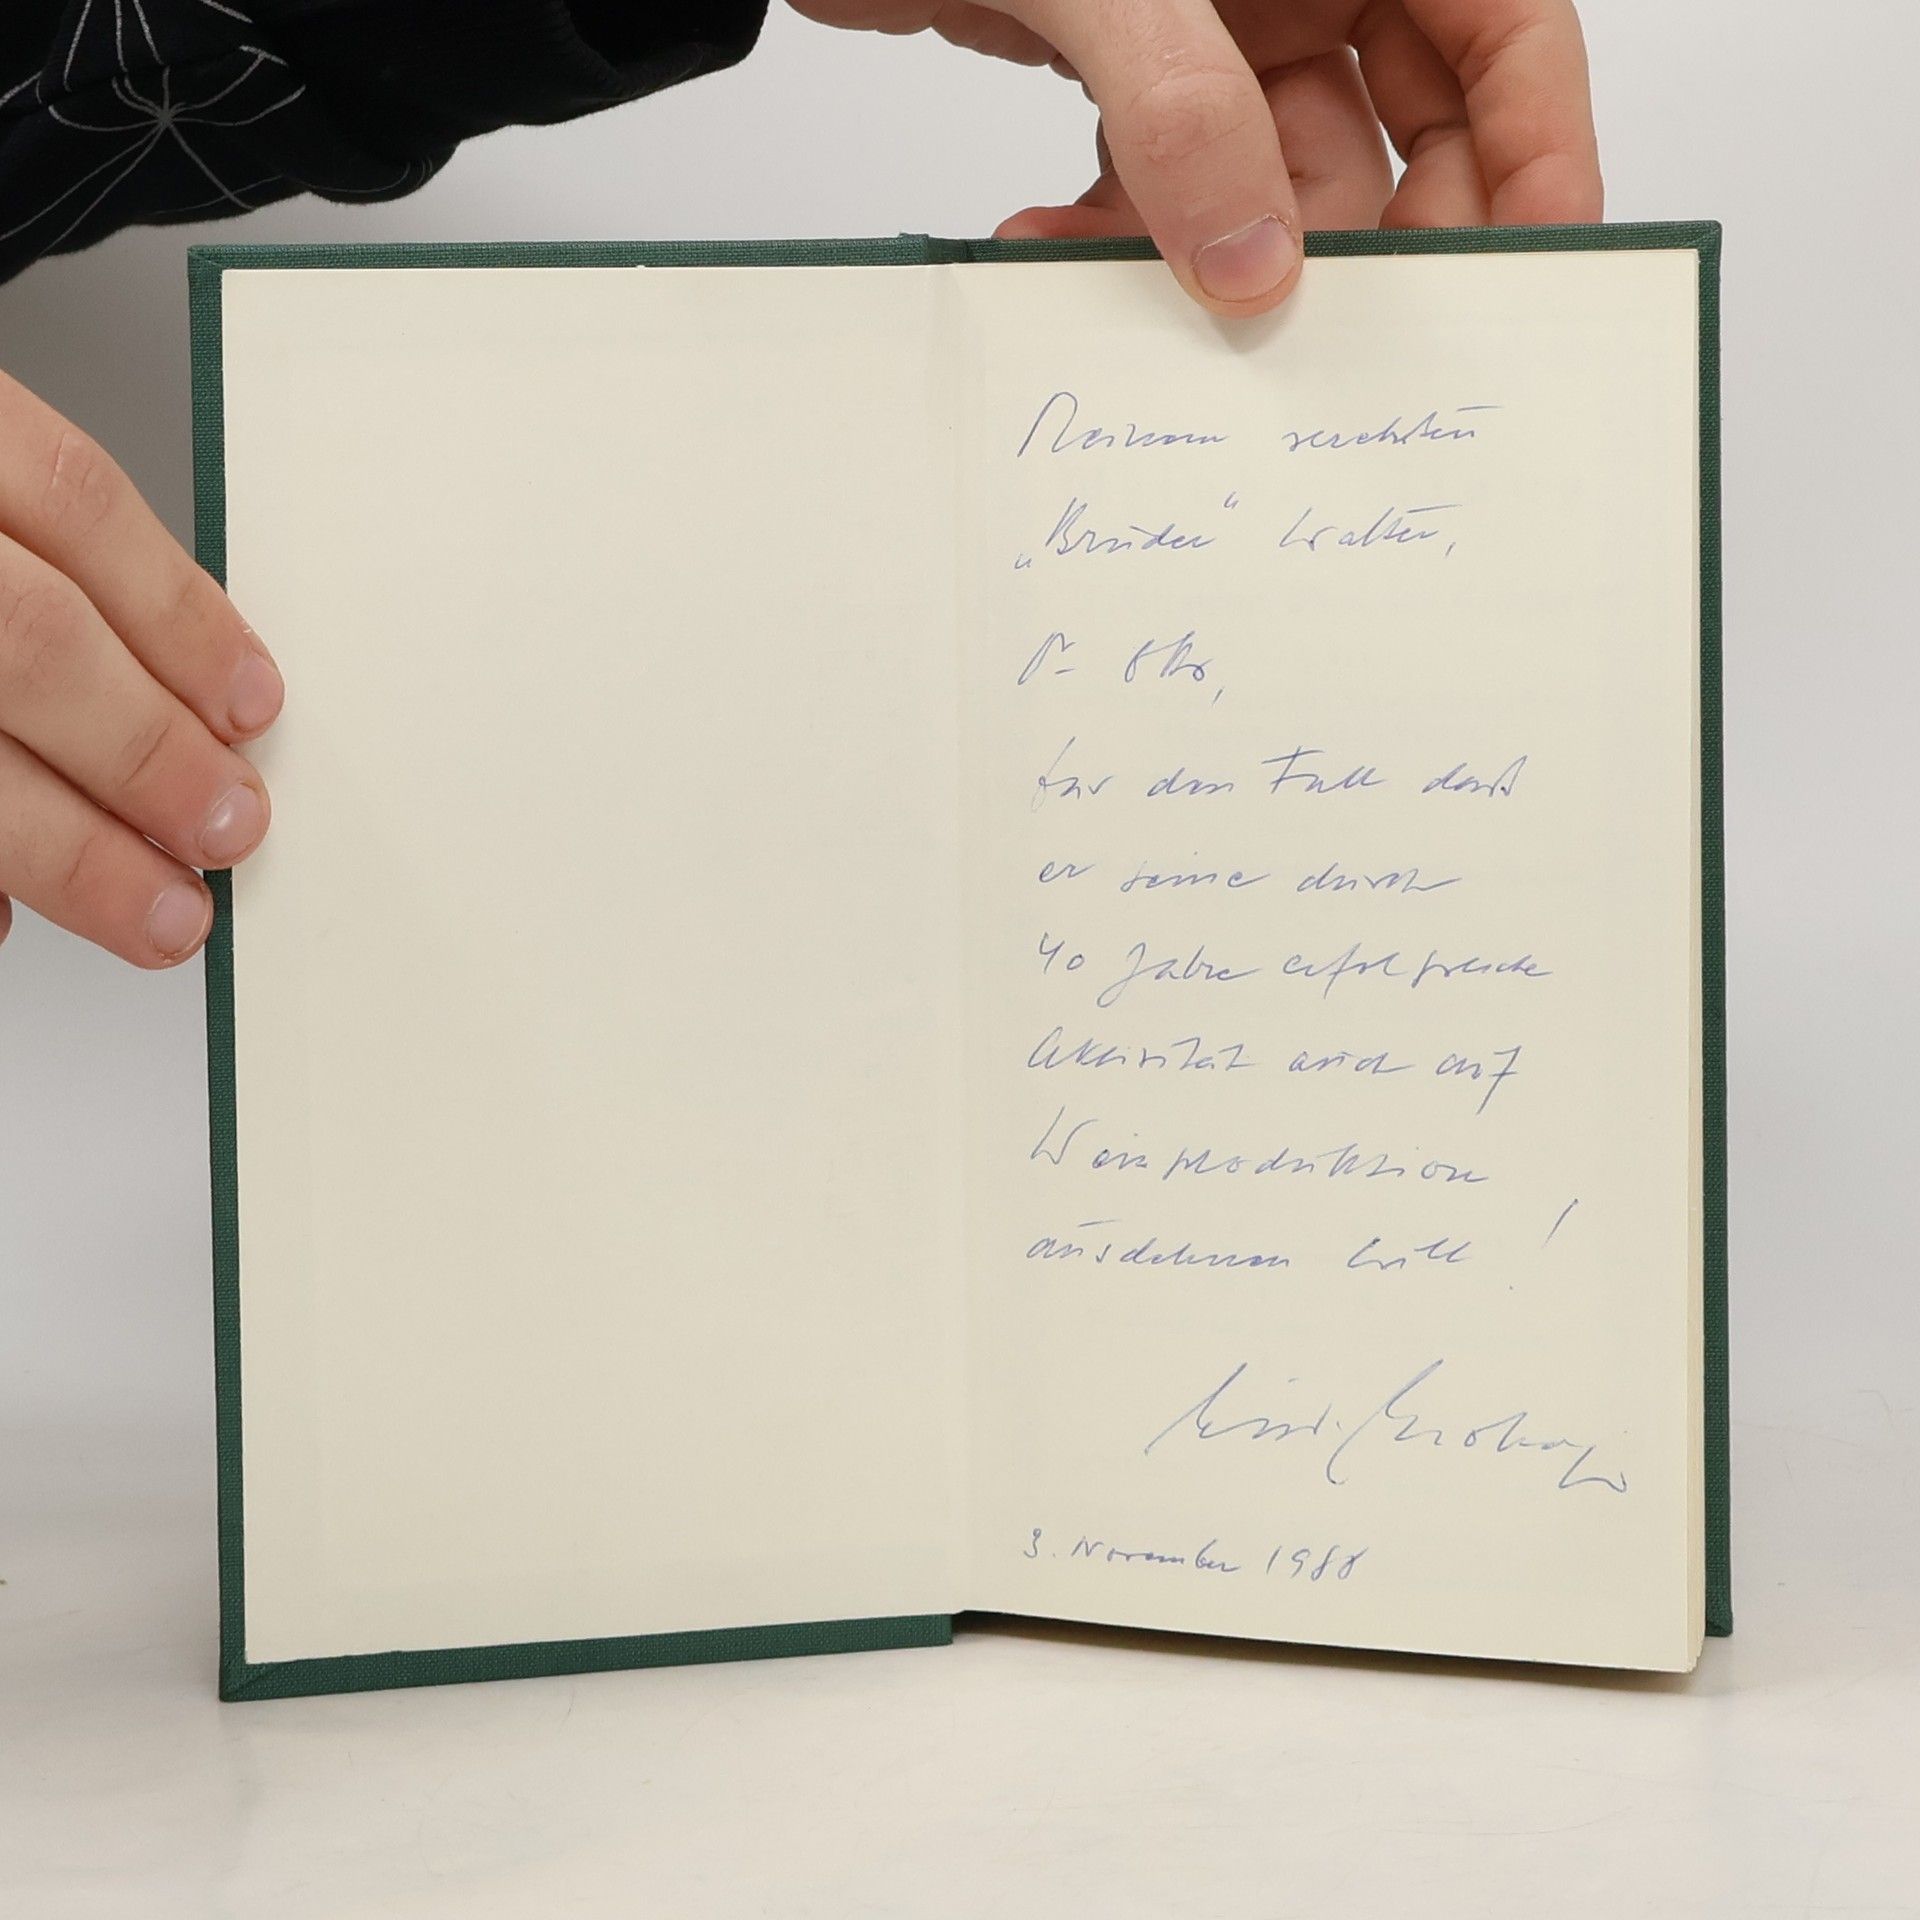 Meinem verehrten
„Bruder“ Walter,
P- Otto,
für den Fall daß
er seine durch
40 Jahre erfolgreiche
Aktivität auch auf
Weinproduktion
ausdehnen will!
3. November 1988